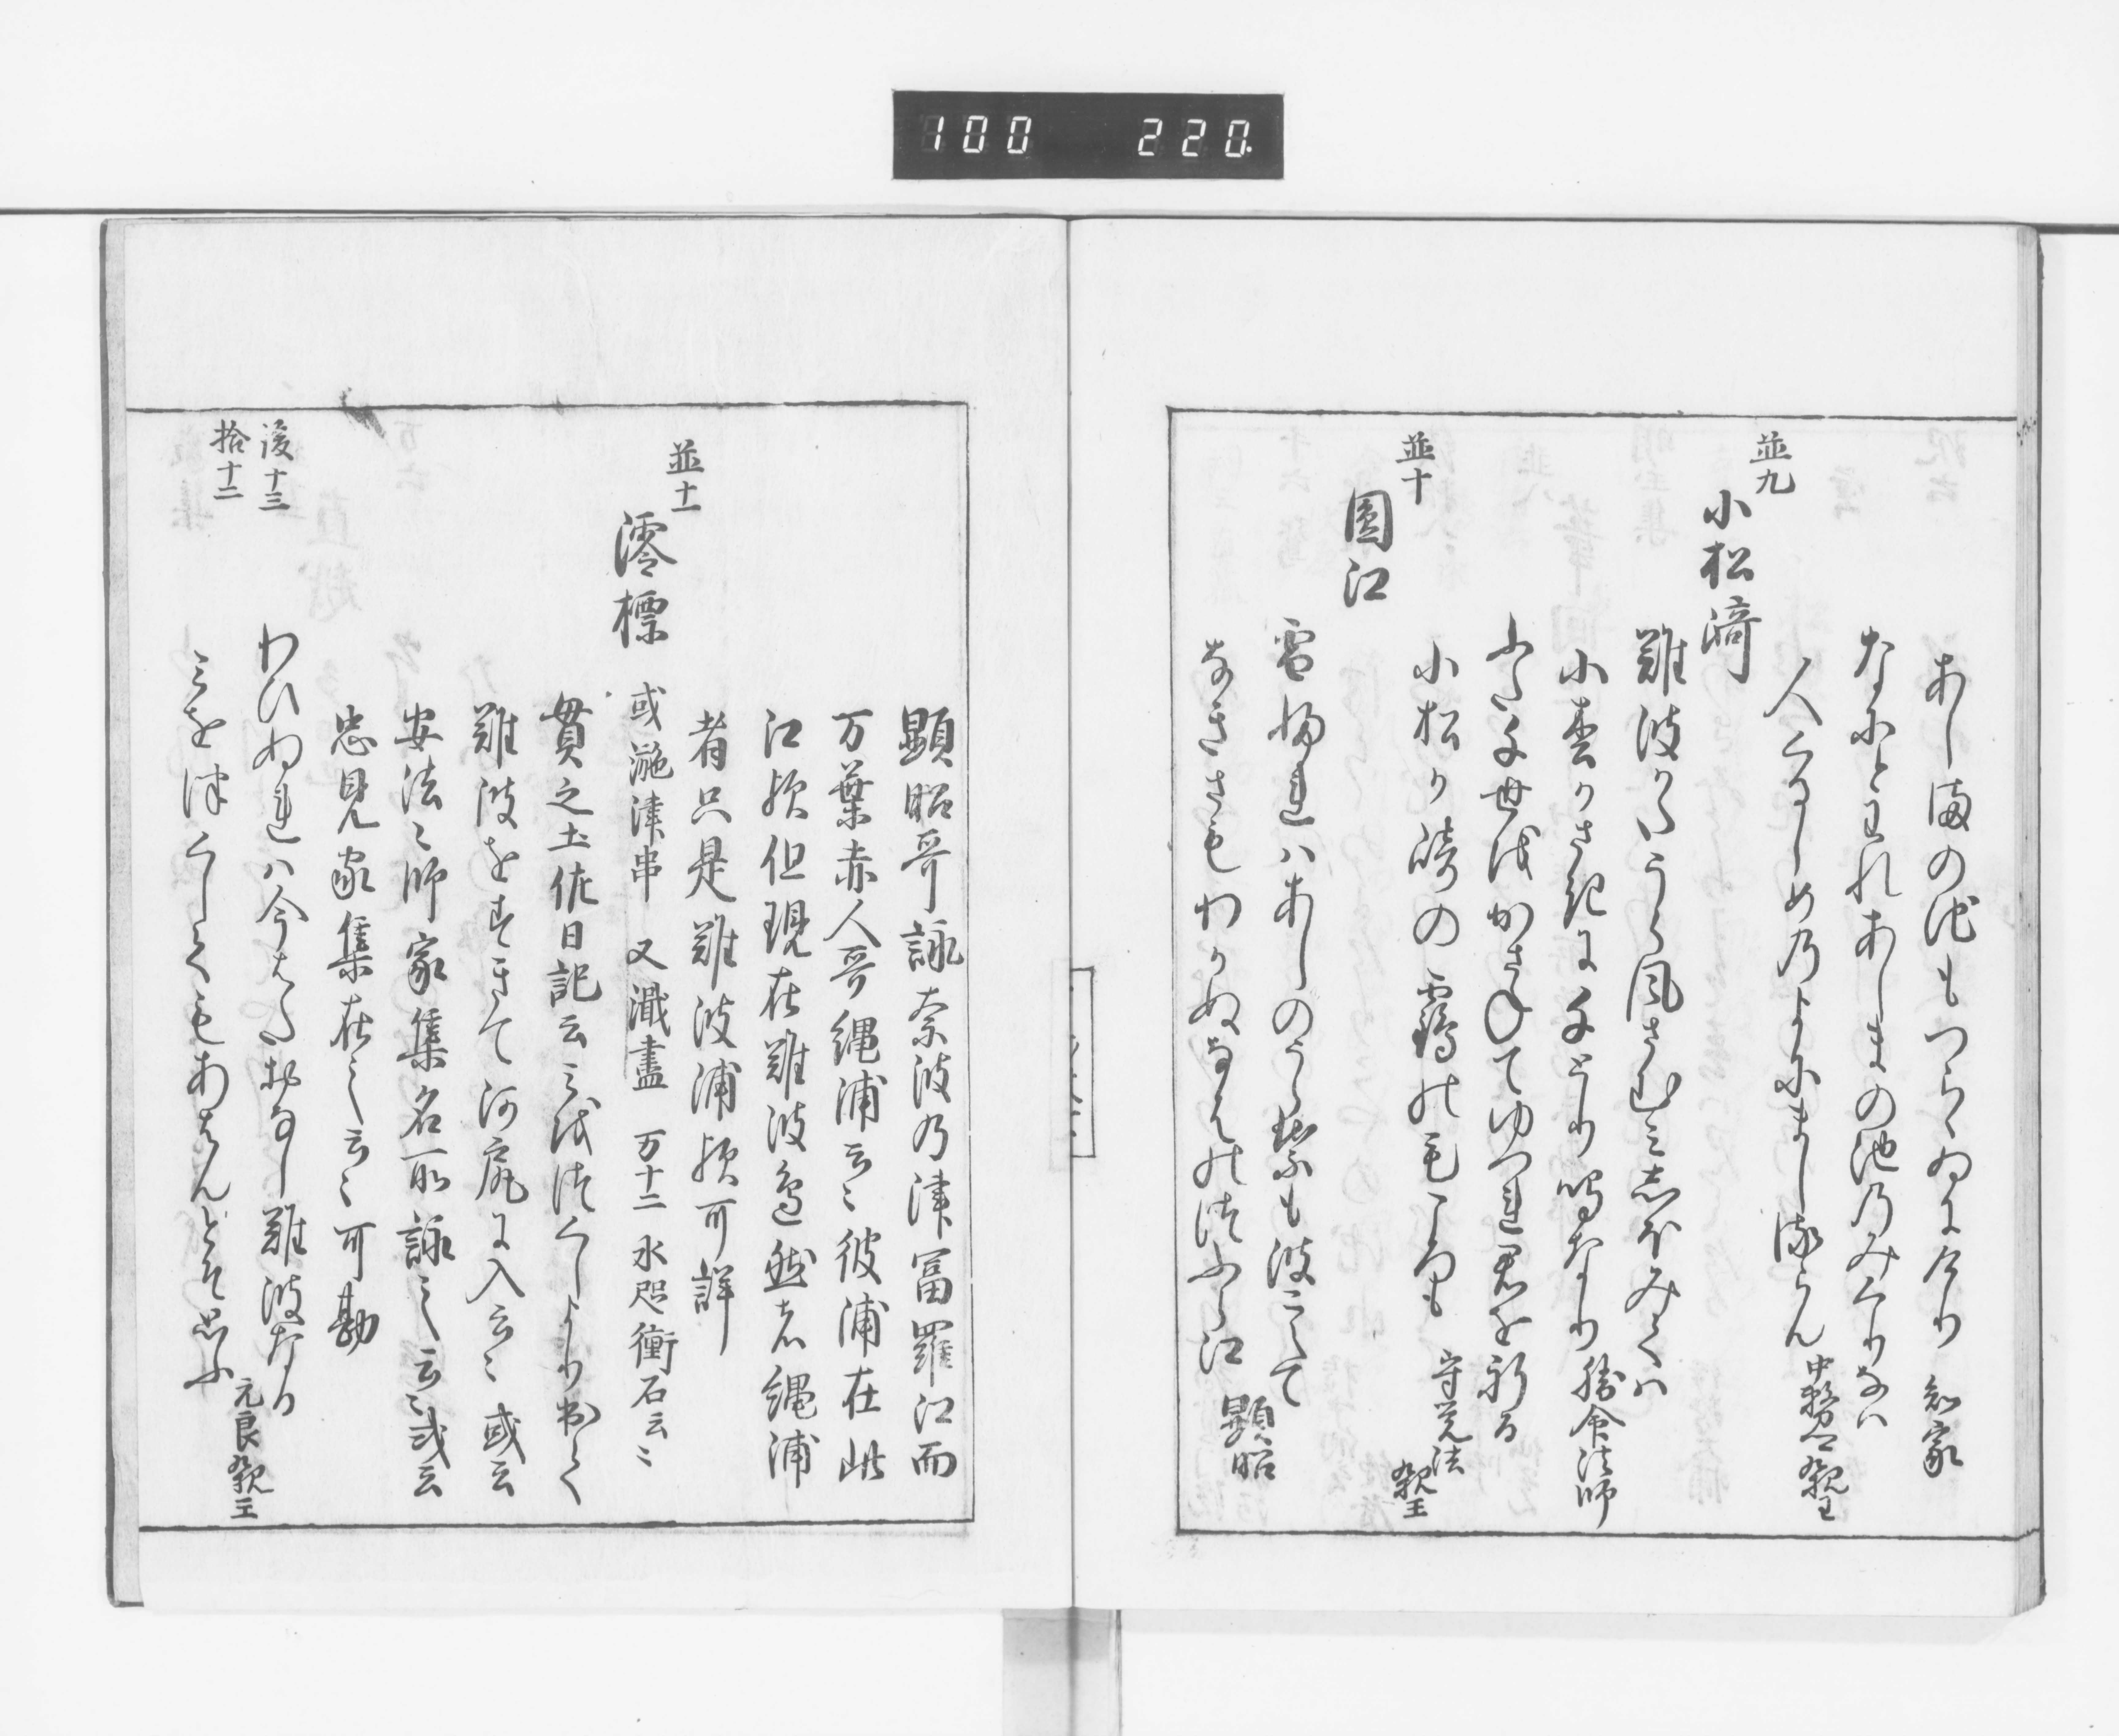 100 220.
あし満の池もつらゝゐにけり 知家
なにとわれあしまの池乃みくりなハ
人くるしめ乃よにましるらん 中務卿親王
並九
小松濱
難波かたうら風さむミ志ほみてハ
小松かさきに千とり鳴なり 勝命法師
ふた千世をかさねてゆつれ君を祈る
小松か崎の靏の毛ころも 守覚法親王
並十
圓江
雪ふれハあしのうら葉も波こえて
なきさもわかぬなにはつふら江 顕昭
顕昭哥詠奈波乃津冨羅江而
万葉赤人哥縄浦云々彼浦在此
江歟但現在難波邊然者縄浦
者只是難波浦歟可詳
並十一
澪標 或漩津串 又瀐盡 万十二 水咫衝石云々
貫之土佐日記云ミをつくしより出て
難波をすきて河尻に入云々或云
安法々師家集名所詠之云々或云
忠見家集在之云々可勘
後十三
拾十二
わひぬれハ今はた於なし難波なる
ミを津くしてもあはんとそ思ふ 元良親王